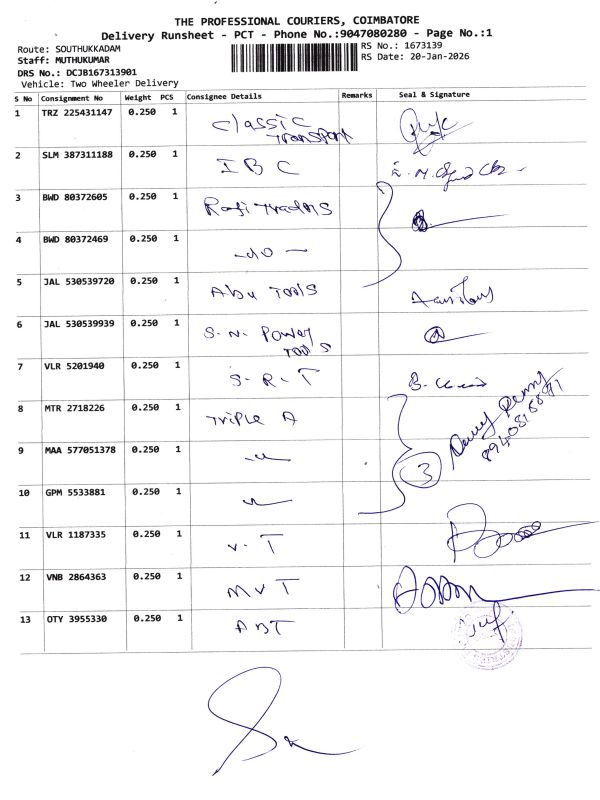 THE PROFESSIONAL COURIERS, COIMBATORE
Delivery Runsheet - PCT - Phone No.:9047080280 - Page No.:1
Route: SOUTHUKKADAM
Staff: MUTHUKUMAR
DRS No.: DCJB167313901
Vehicle: Two Wheeler Delivery
RS No.: 1673139
RS Date: 20-Jan-2026
S No Consignment No Weight PCS Consignee Details Remarks Seal & Signature
1 TRZ 225431147 0.250 1 Classic
Transport
2 SLM 387311188 0.250 1 IBC
3 BWD 80372605 0.250 1 Rafi Traders
4 BWD 80372469 0.250 1 -do-
5 JAL 530539720 0.250 1 Abu Tools
6 JAL 530539939 0.250 1 S.N. Power
Tools
7 VLR 5201940 0.250 1 S.R.T
8 MTR 2718226 0.250 1 Triple A
9 MAA 577051378 0.250 1
3
10 GPM 5533881 0.250 1
11 VLR 1187335 0.250 1 V.T
12 VNB 2864363 0.250 1 MVT
13 OTY 3955330 0.250 1 ABT